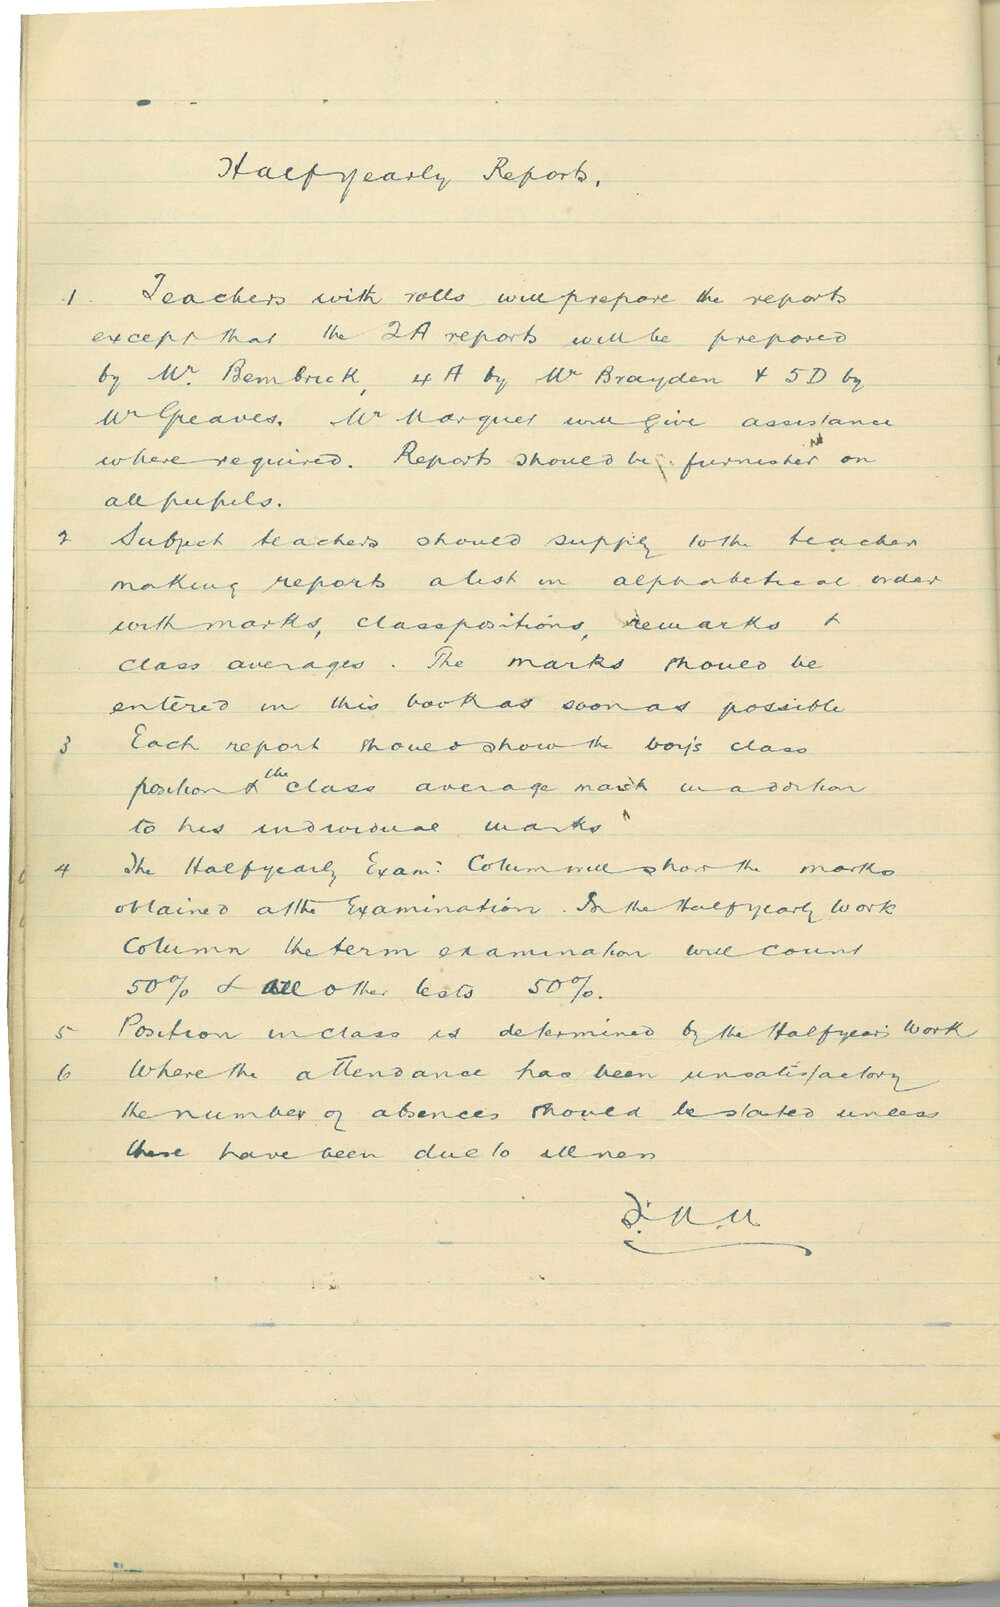 Halfyearly Reports.
1. Teachers with rolls will prepare the reports
except that the 2A reports will be prepared
by Mr. Bembrick, 4A by Mr Brayden & 5D by
Mr Greaves. Mr will give assistance
where required. Reports should be furnished on
all pupils.
2 Subject teachers should supply to the teacher
making reports a list in alphabetical order
with marks, class positions, remarks &
class averages. The marks should be
entered in this book as soon as possible
3 Each report should show the boy's class
position & the class average mark in addition
to his individual marks
4 The Halfyearly Exam: Column will show the marks
obtained at the Examination. In the Halfyearly Work
Column the term examination will count
50% & all other tests 50%.
5 Position in class is determined by the Halfyear's Work
6 Where the attendance has been unsatisfactory
the number of absences should be stated unless
these have been due to illness